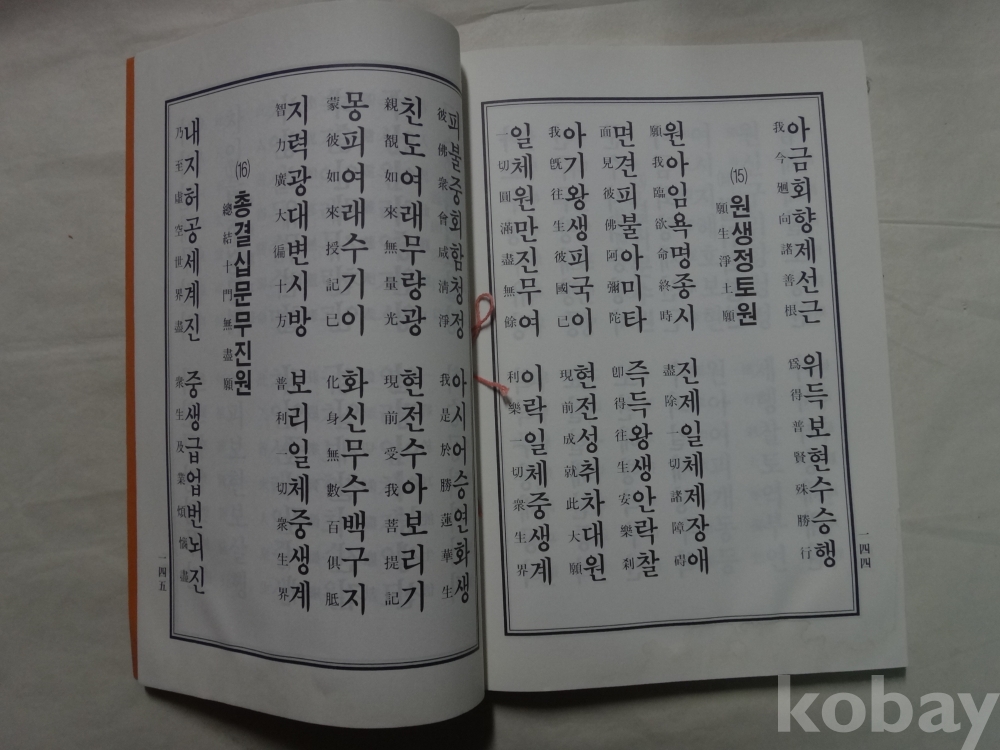 아금회향제선근 위득보현수승행
我今廻向諸善根 爲得普賢殊勝行
(15) 원생정토원
願生淨土願
원아임욕명종시 진제일체제장애
願我臨欲命終時 盡除一切諸障碍
면견피불아미타 즉득왕생안락찰
面見彼佛阿彌陀 卽得往生安樂刹
아기왕생피국이 현전성취차대원
我旣往生彼國已 現前成就此大願
일체원만진무여 이락일체중생계
一切圓滿盡無餘 利樂一切衆生界
一四四
피불중회함청정 아시어승연화생
彼佛衆會咸淸淨 我是於勝蓮華生
친도여래무량광 현전수아보리기
親覩如來無量光 現前受我菩提記
몽피여래수기이 화신무수백구지
蒙彼如來授記已 化身無數百俱胝
지력광대변시방 보리일체중생계
智力廣大徧十方 普利一切衆生界
(16) 총결십문무진원
總結十門無盡願
내지허공세계진 중생급업번뇌진
乃至虛空世界盡 衆生及業煩惱盡
一四五
kobay